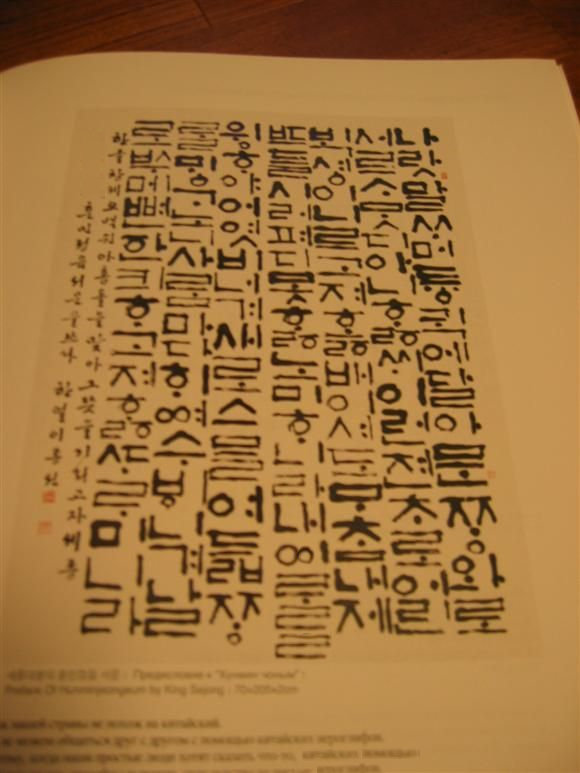 나랏말ᄊᆞ미듕귁에달아문ᄍᆞᆼ와로
서르ᄉᆞᄆᆞᆺ디아니ᄒᆞᆯᄊᆡ이런젼ᄎᆞ로어린
ᄇᆡᆨ셔ᇰ이니르고져호ᇙ배이셔도ᄆᆞᄎᆞᆷ내제
ᄠᅳ들시러펴디몯ᄒᆞᇙ노미하니라내이ᄅᆞᆯ
윙ᄒᆞ야어엿비너겨새로스믈여듧ᄍᆞᆼ
ᄅᆞᆯᄆᆡᇰᄀᆞ노니사ᄅᆞᆷ마다ᄒᆡᅇᅧ수ᄫᅵ니겨날
로ᄡᅮ메뼌한킈ᄒᆞ고져ᄒᆞᇙᄯᆞᄅᆞ미니라
한글창제 아홉돌을 맞아 그 뜻을 기리고자 세종
훈민정음 서문을 쓰다
세종대왕의 훈민정음 서문 : Предисловие к "Хунмин чоным" :
Preface Of Hunminjeongeum by King Sejong : 70×205×2cm
нашей страны не похож на китайский.
не можем общаться друг с другом с помощью китайских иероглифов.
когда наши простые люди хотят сказать что-то, китайских помощью